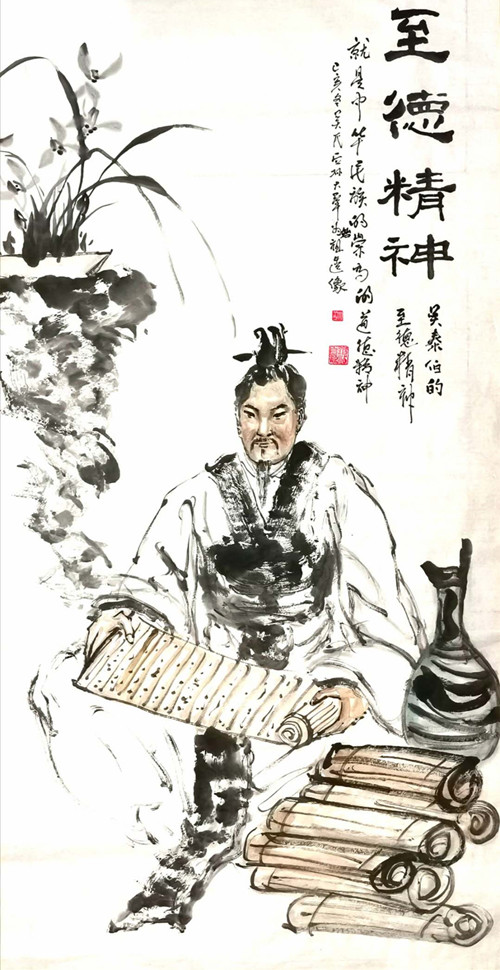 至德精神
吴泰伯的
至德精神
就是中华民族的崇高的道德精神
己亥冬吴氏 为始祖造像